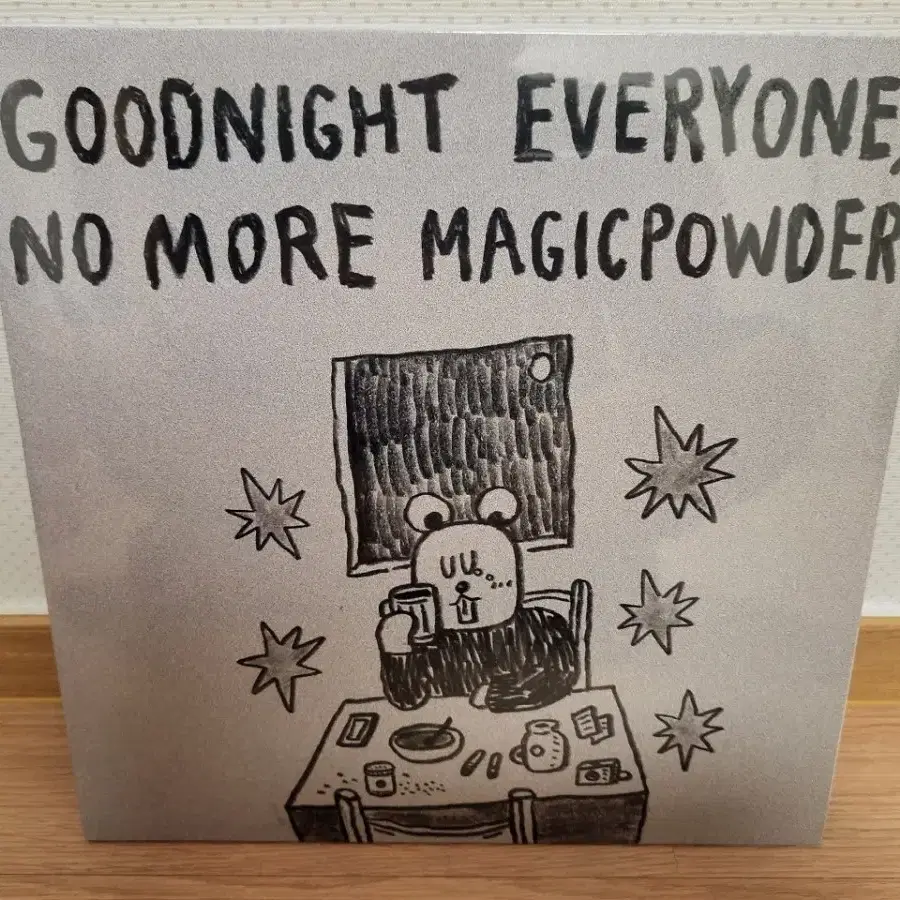 GOODNIGHT EVERYONE,
NO MORE MAGICPOWDER